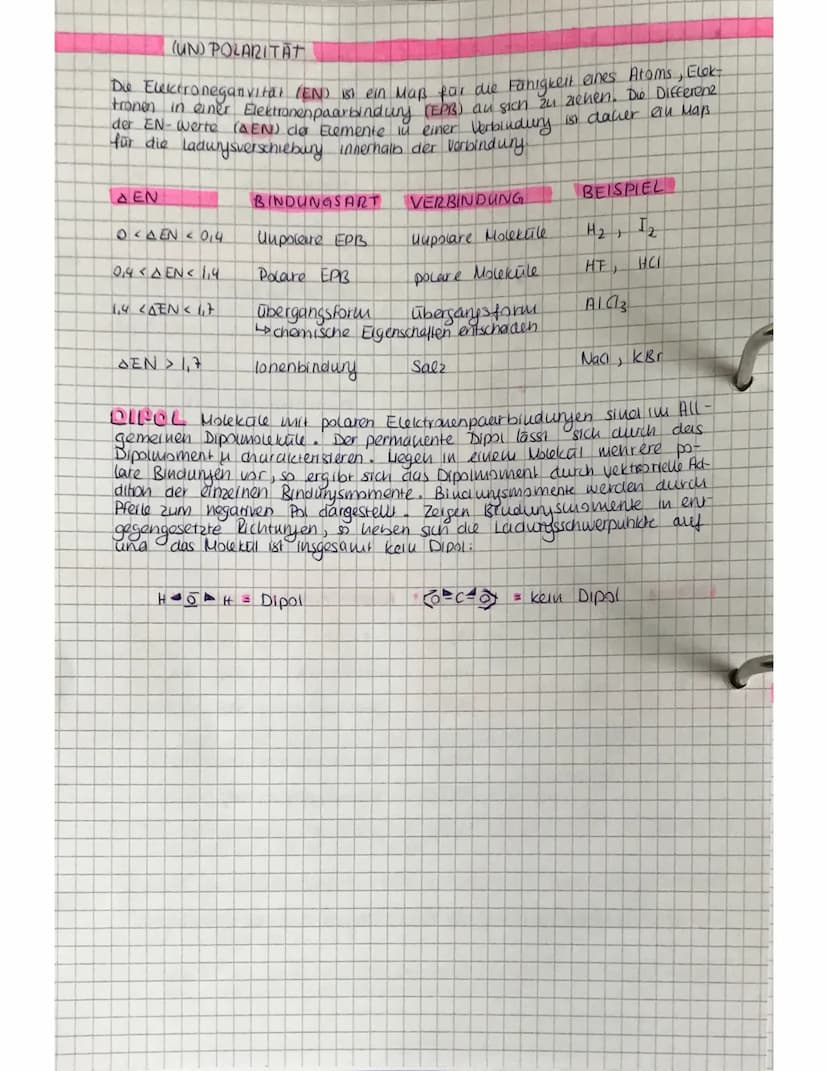 (UN) POLARITÄT
Die Elektronegativität (EN) ist ein Maß für die Fähigkeit eines Atoms, Elek-
tronen in einer Elektronenpaarbindung (EPB) an sich zu ziehen. Die Differenz
der EN-Werte (ΔEN) der Elemente in einer Verbindung ist daher ein Maß
für die Ladungsverschiebung innerhalb der Verbindung.
ΔEN BINDUNGSART VERBINDUNG BEISPIEL
0 < ΔEN < 0,4 Unpolare EPB unpolare Moleküle H₂, I₂
0,4 < ΔEN < 1,4 Polare EPB polare Moleküle HF, HCl
1,4 < ΔEN < 1,7 Übergangsform Übergangsform AlCl₃
↳ chemische Eigenschaften entscheiden
ΔEN > 1,7 Ionenbindung Salz NaCl, KBr
DIPOL Moleküle mit polaren Elektronenpaarbindungen sind im All-
gemeinen Dipolmoleküle. Der permanente Dipol lässt sich durch das
Dipolmoment μ charakterisieren. Liegen in einem Molekül mehrere po-
lare Bindungen vor, so ergibt sich das Dipolmoment durch vektorielle Ad-
dition der einzelnen Bindungsmomente. Bindungsmomente werden durch
Pfeile zum negativen Pol dargestellt. Zeigen Bindungsmomente in ent-
gegengesetzte Richtungen, so heben sich die Ladungsschwerpunkte auf
und das Molekül ist insgesamt kein Dipol:
H ◄ O ► H = Dipol ⟨O=C=O⟩ = kein Dipol